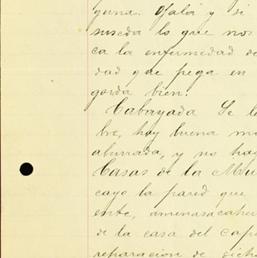 guna. Ojalá y si
suceda lo que nos
ca la enfermedad de
dad que pega en
gorda bien.
Cabayada Se la
bre, hay buena ma
ahuvada, y no hay
Casas de la
cayo la pared que
ente, amenasa caher
de la casa del cap
reparacion de dicha